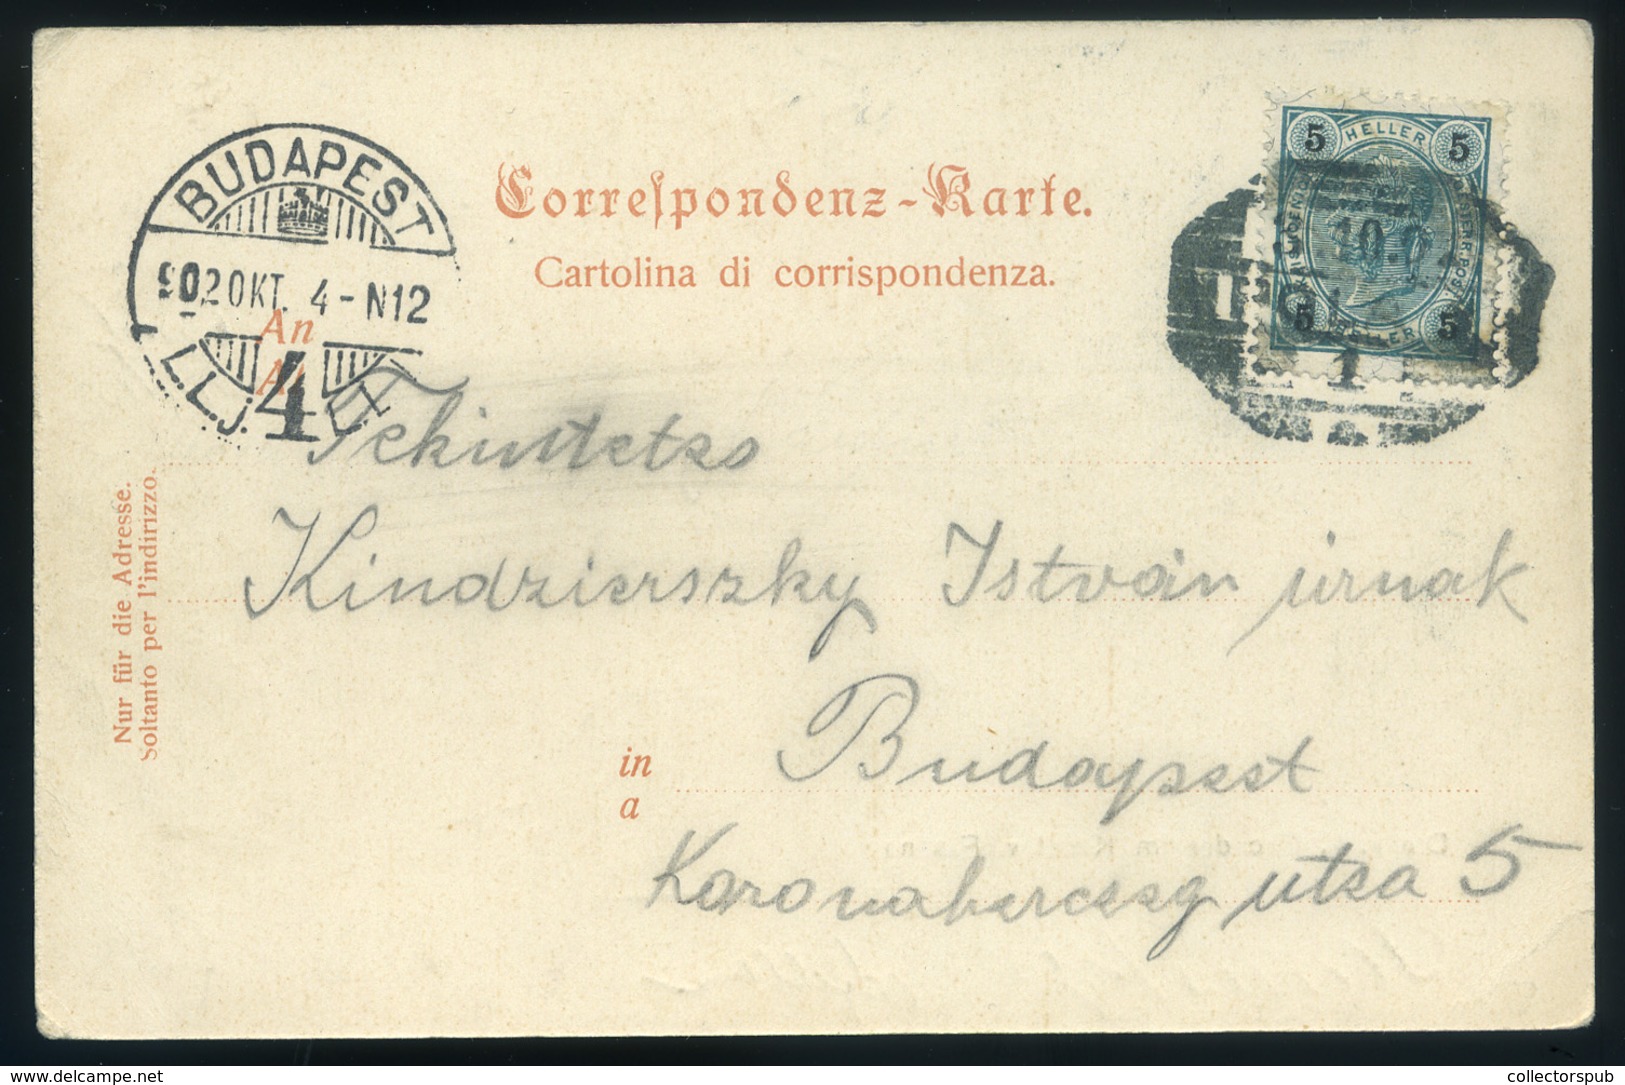 Correspondenz-Karte.
Cartolina di corrispondenza.
BUDAPEST
902 OKT. 4-N12
4
An
5 HELLER 5
5 HELLER 5
1
Nur für die Adresse.
Soltanto per l'indirizzo
Tekintetes
Kindzierszky István úrnak
in
a
Budapest
Koronaherczeg utsa 5
collectorspub